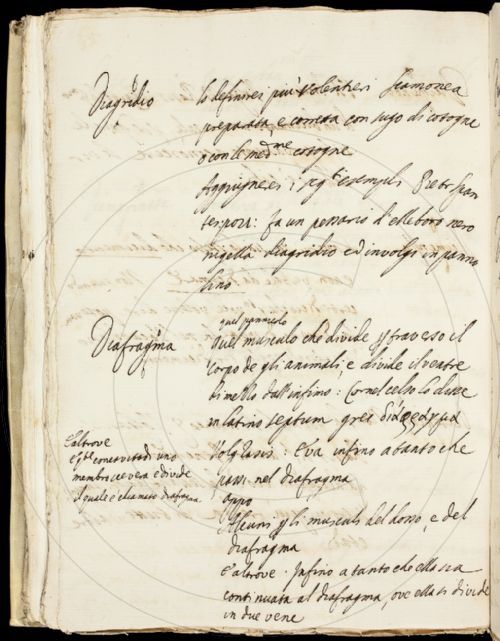 Diagridio
lo definirei più volentieri scamonea
preparata, e corretta con sugo di cotogne
o con le med.ne cotogne
Aggiugnerei i seg.ti esempli Pietr. Span.
tes: pov: fa un pessario d'elleboro nero
nigella diagridio ed involgi in panno
lino
Diafragma
quel pannicolo
Quel musculo che divide p traverso il
corpo de gli animali, e divide il ventre
di mezzo dall'infimo: Cornel celso lo disse
in latino septum gres διάφραγμα
Volg: Rasis: E va infino a tanto che
passi nel diafragma
Appo
Alcuni p li musculi del dosso, e del
diafragma
E altrove. Infino a tanto che ella sia
continuata al diafragma, ove ella si divide
in due vene
E altrove
costituito di uno
membro che vera e divide
il quale è chiamato diafragma